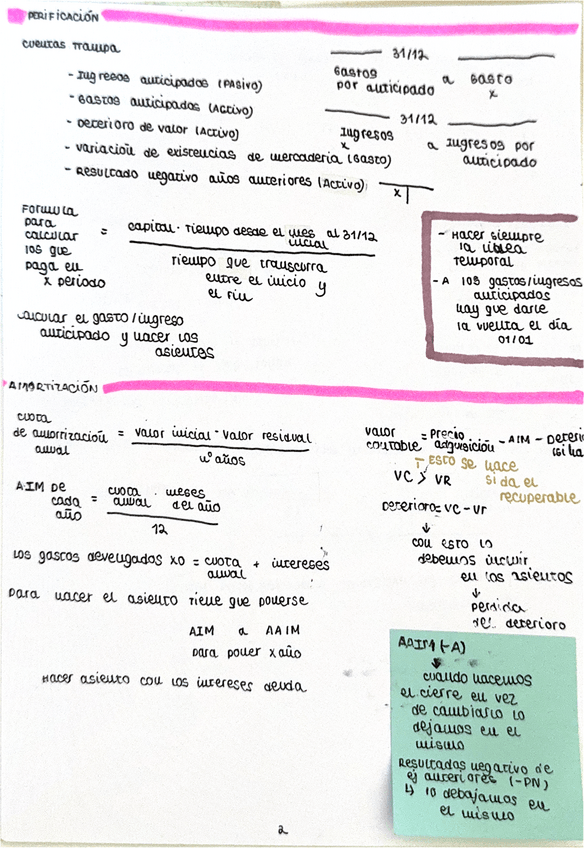 PERIFICACIÓN
cuentas trampa
- Ingresos anticipados (PASIVO)
- Gastos anticipados (Activo)
- Deterioro de valor (Activo)
- variación de existencias de mercadería (Gasto)
- Resultado negativo años anteriores (Activo)
31/12
Gastos por anticipado a Gasto x
31/12
Ingresos x a Ingresos por anticipado
x
Formula
para
calcular
los que
paga en
x periodo
= capital · tiempo desde el mes inicial al 31/12
tiempo que transcurra
entre el inicio y
el fin
calcular el gasto/ingreso
anticipado y hacer los
asientos
- Hacer siempre
la linea
temporal
- A los gastos/ingresos
anticipados
hay que darle
la vuelta el día
01/01
AMORTIZACIÓN
cuota
de amortización = valor inicial - valor residual
anual
nº años
AIM de
cada
año
= cuota anual · meses del año
12
Los gastos devengados x0 = cuota anual + intereses
para hacer el asiento tiene que ponerse
AIM a AAIM
para poner x año
Hacer asiento con los intereses deuda
valor contable = Precio adquisición - AIM - Deteri
(si ha
↑ ESTO se hace
si da el
recuperable
VC > VR
Deterioro = VC - Vr
↓
con esto lo
debemos incluir
en los asientos
↓
perdida
del deterioro
AAIM (-A)
↓
cuando hacemos
el cierre en vez
de cambiarlo lo
dejamos en el
mismo
Resultados negativo de
ej anteriores (-PN)
↳ lo debajamos en
el mismo
2